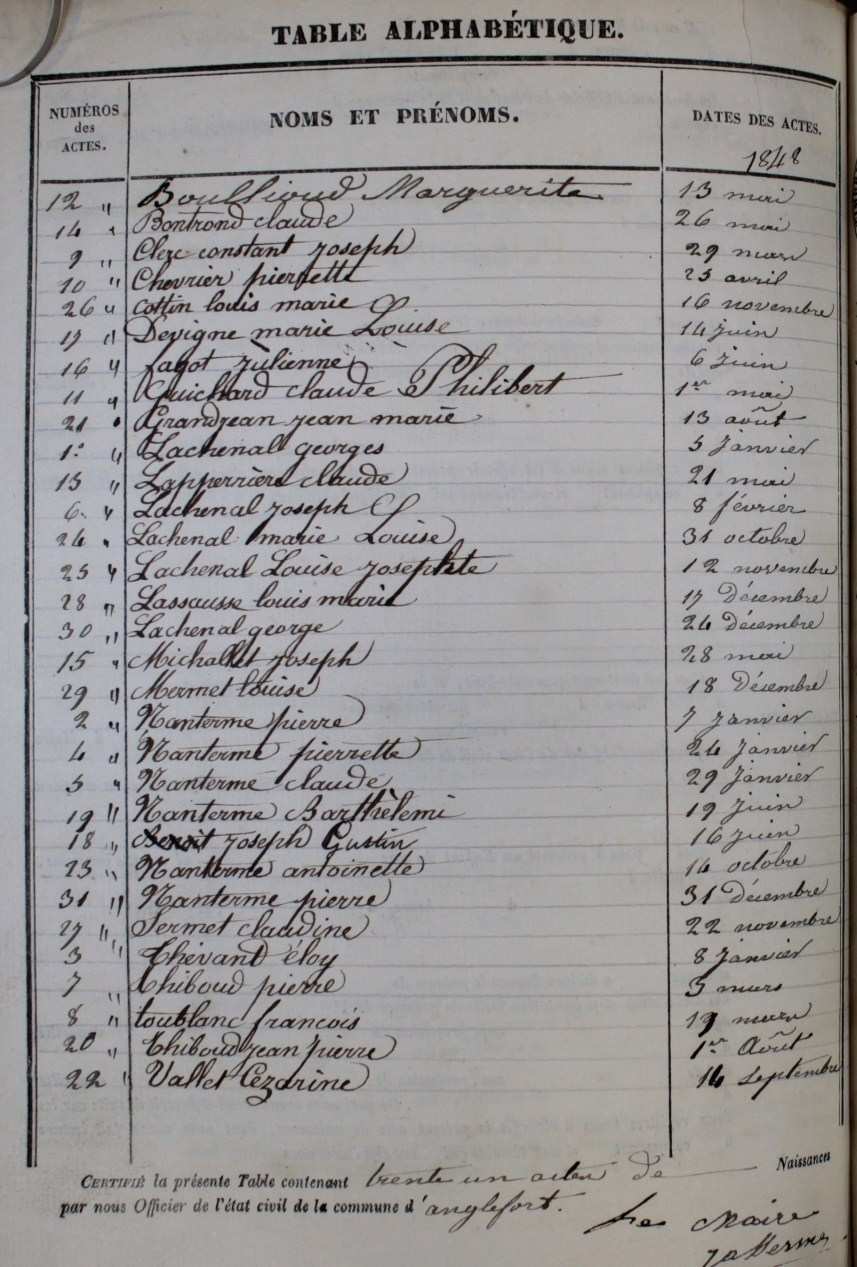 TABLE ALPHABÉTIQUE.
NUMÉROS des ACTES. NOMS ET PRÉNOMS. DATES DES ACTES.
1848
12 " Boullioud Marguerite 13 mai
14 " Bontrond claude 26 mai
9 " Clerc constant joseph 29 mars
10 " Chevrier pierrette 23 avril
26 " Cottin louis marie 16 novembre
17 " Devigne marie Louise 14 juin
16 " fagot julienne 6 juin
11 " Guichard claude Philibert 1er mai
21 " Grandjean jean marie 13 août
1. " Lachenal georges 5 janvier
13 " Lapperrière claude 21 mai
6 " Lachenal joseph 8 février
24 " Lachenal marie Louise 31 octobre
25 " Lachenal Louise josephte 12 novembre
28 " Lassausse louis marie 17 Décembre
30 " Lachenal george 24 Décembre
15 " Michallet joseph 28 mai
29 " Mermet louise 18 Décembre
2 " Nanterme pierre 7 janvier
4 " Nanterme pierrette 24 janvier
5 " Nanterme claude 29 janvier
19 " Nanterme Barthèlemi 19 juin
18 " Benoit joseph Gustin 16 juin
23 " Nanterme antoinette 14 octobre
31 " Nanterme pierre 31 Décembre
27 " Sermet claudine 22 novembre
3 " Thévand éloy 8 janvier
7 " thiboud pierre 3 mars
8 " toublanc francois 19 mars
20 " thiboud jean pierre 1er Août
22 " Vallet Cezarine 14 septembre
CERTIFIÉ la présente Table contenant trente un actes de Naissances
par nous Officier de l'état civil de la commune d'anglefort.
Le Maire